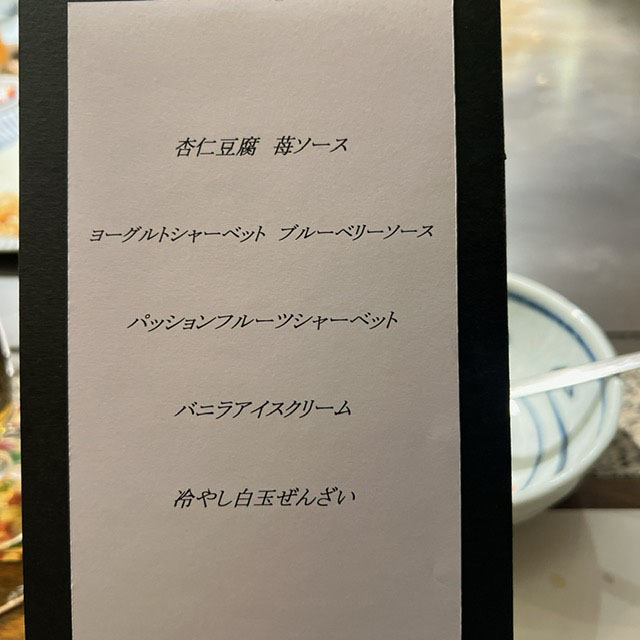 杏仁豆腐　苺ソース
ヨーグルトシャーベット　ブルーベリーソース
パッションフルーツシャーベット
バニラアイスクリーム
冷やし白玉ぜんざい